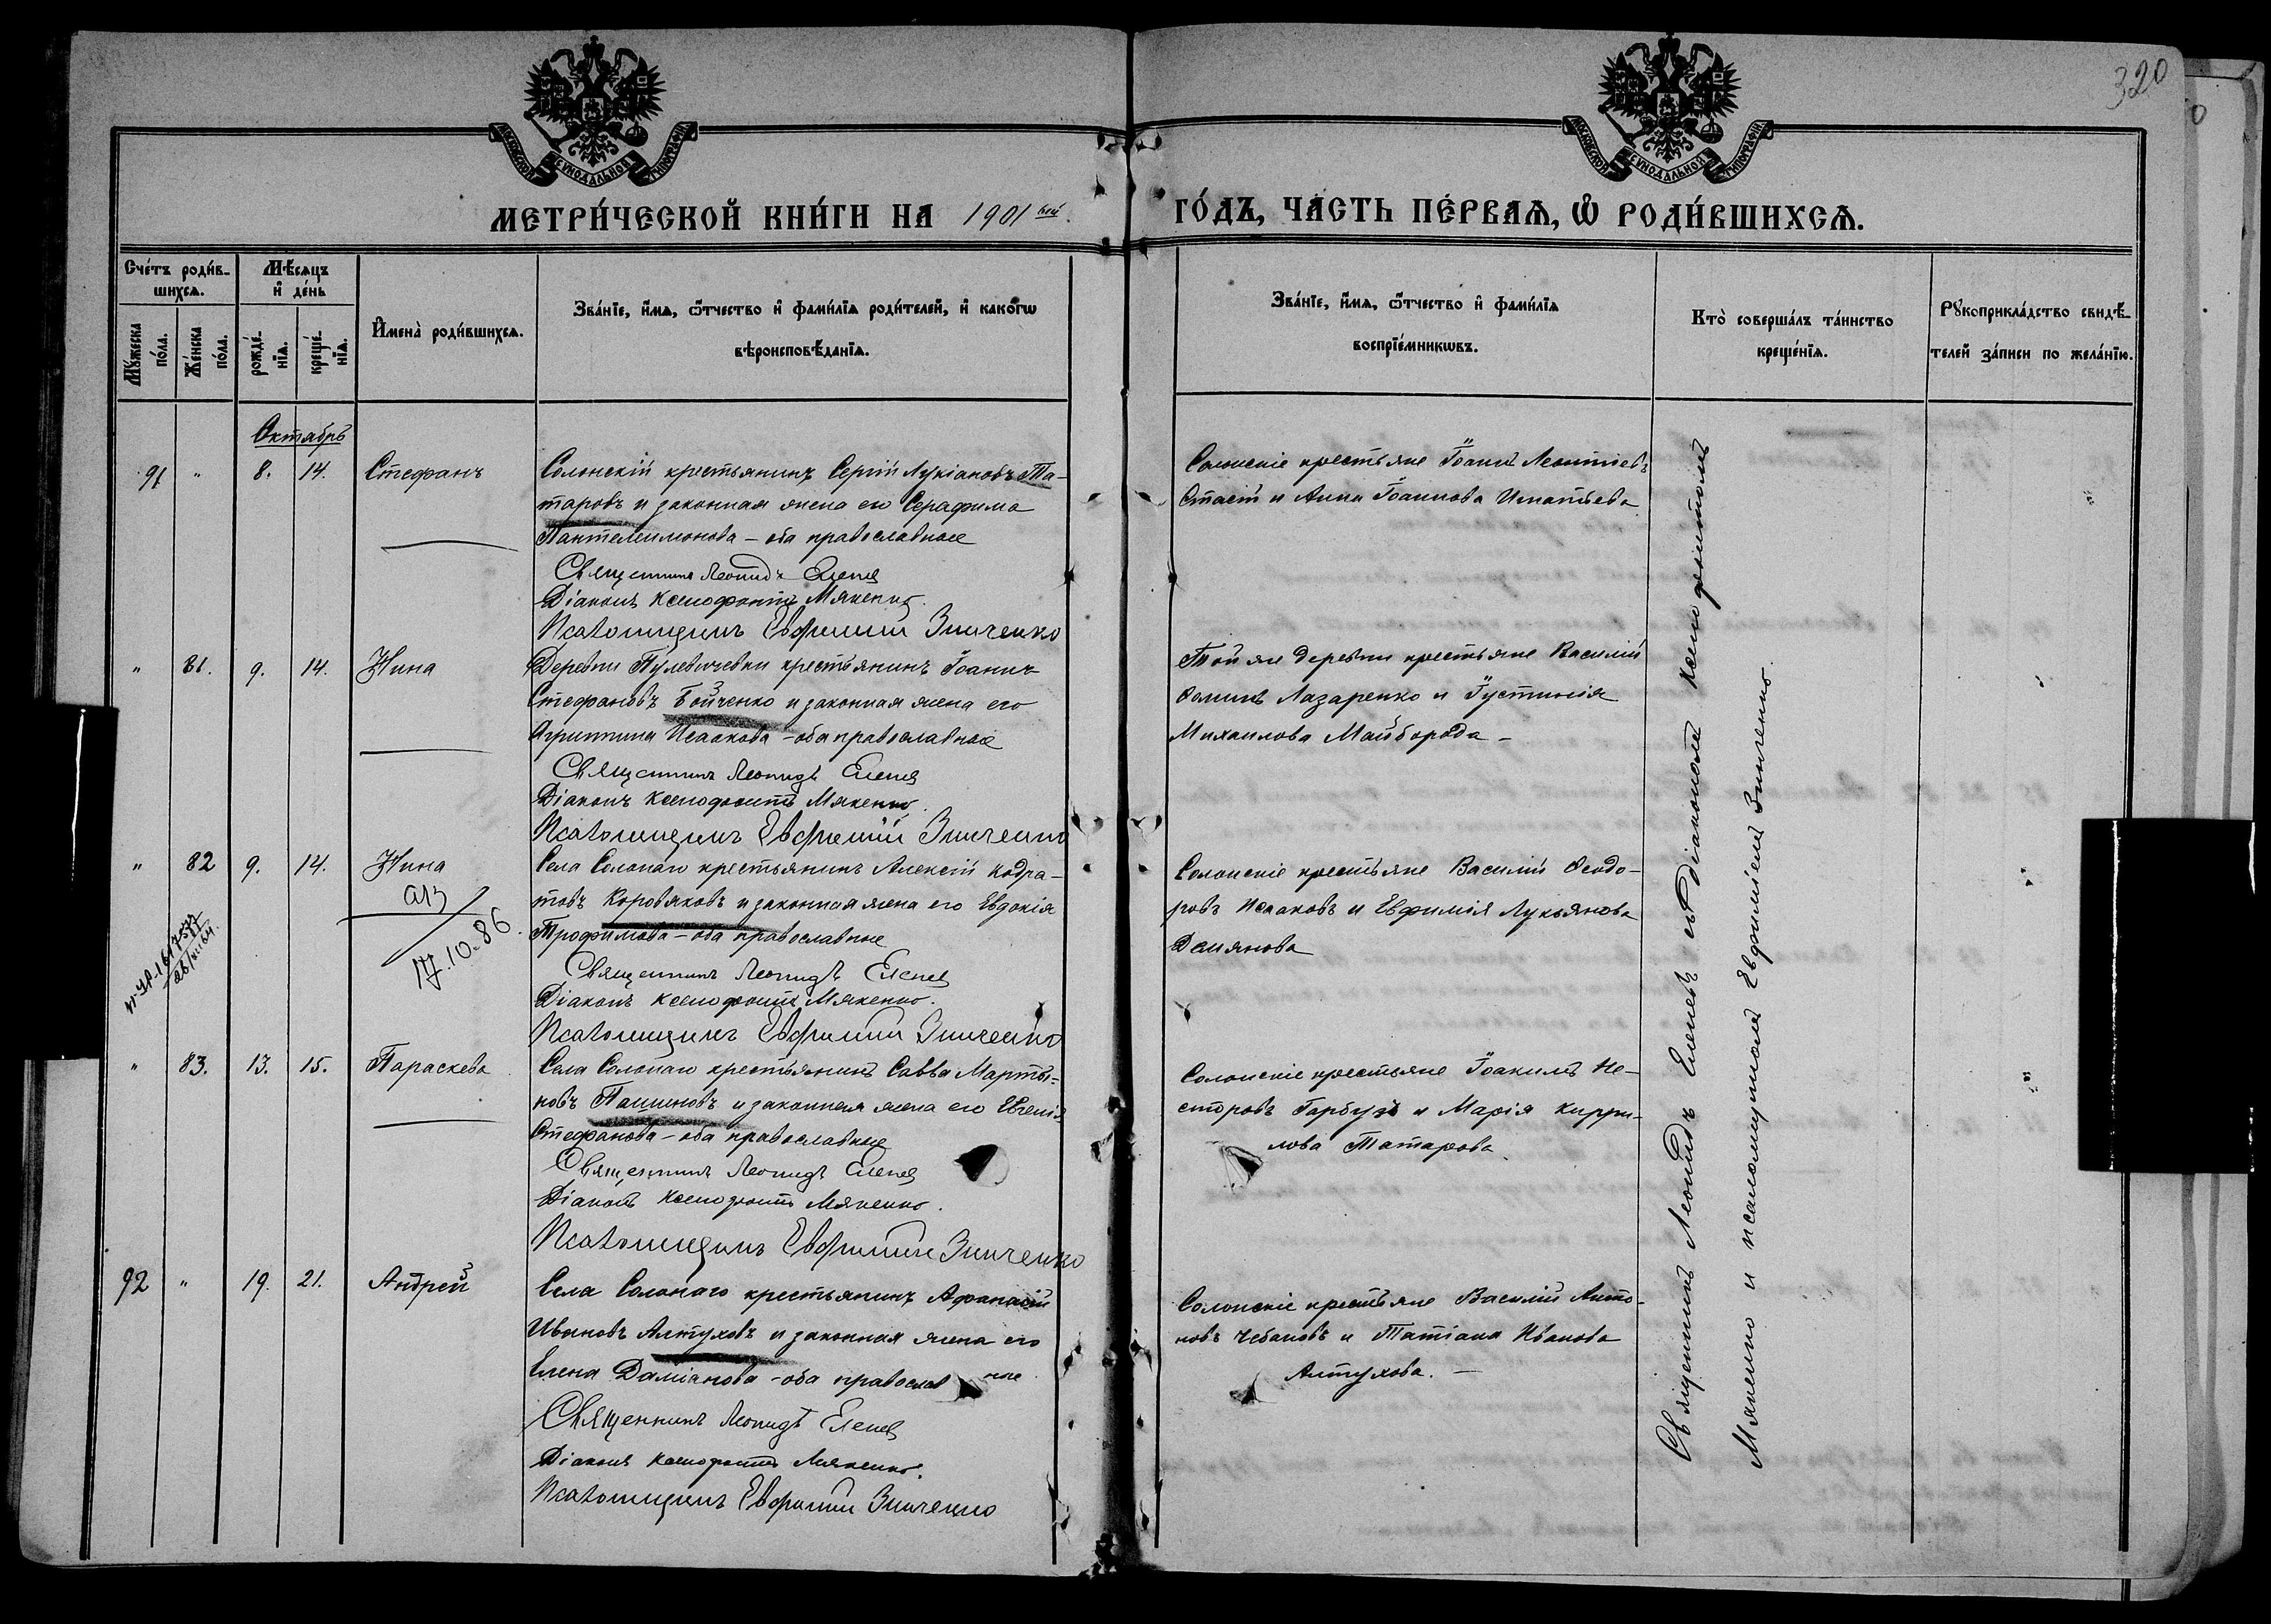 320
МОСКОВСКОЙ СѴНОДАЛЬНОЙ ТИПОГРАФІИ
МОСКОВСКОЙ СѴНОДАЛЬНОЙ ТИПОГРАФІИ
МЕТРИ́ЧЕСКОЙ КНИ́ГИ НА 1901 ГО́ДЪ, ЧА́СТЬ ПЕ́РВАѦ, Ѡ РОДИ́ВШИХСѦ.
Сче́тъ роди́в-
шихсѧ.
Мѣ́сѧцъ
и҆ де́нь
Мꙋ́жеска
по́ла.
Же́нска
по́ла.
рожде́-
нїѧ.
креще́-
нїѧ.
И҆мена̀ роди́вшихсѧ.
Зва́нїе, и҆́мѧ, ѻ҆́тчество и҆ фами́лїѧ роди́телей, и҆ како́гѡ
вѣроисповѣ́данїѧ.
Зва́нїе, и҆́мѧ, ѻ҆́тчество и҆ фами́лїѧ
воспрїе́мникѡвъ.
Кто̀ соверша́лъ та́инство
креще́нїѧ.
Рꙋкоприкла́дство свидѣ́-
телей за́писи по жела́нїю.
Октябрь
91 " 8. 14. Стефанъ
Солонскій крестьянинъ Сергій Лукіановъ Та-
таровъ и законная жена его Серафима
Пантелеимонова - оба православные
Священникъ Леонидъ Еленев
Діаконъ Ксенофонтъ Мякенко.
Псаломщикъ Евфимій Зинченко
Солонскіе крестьяне Іоаннъ Леонтіевъ
и Анна Іоаннова Игнатьева
" 81. 9. 14. Нина
Деревни Пулевичевки крестьянинъ Іоаннъ
Стефановъ Бойченко и законная жена его
Агриппина Исаакова - оба православные
Священникъ Леонидъ Еленев
Діаконъ Ксенофонтъ Мякенко.
Псаломщикъ Евфимій Зинченко
Той же деревни крестьяне Василій
Фоминъ Лазаренко и Іустинія
Михаилова Майборода -
" 82 9. 14. Нина
17.10.86.
Села Солонаго крестьянинъ Алексій Кодра-
товъ Коровяковъ и законная жена его Евдокія
Трофимова - оба православные
Священникъ Леонидъ Еленев
Діаконъ Ксенофонтъ Мякенко.
Псаломщикъ Евфимій Зинченко
Солонскіе крестьяне Василій Феодо-
ровъ Исааковъ и Евфимія Лукьянова
Демянова
" 83. 13. 15. Параскева
Села Солонаго крестьянинъ Савва Марты-
новъ Пашиновъ и законная жена его Евгенія
Стефанова - оба православные
Священникъ Леонидъ Еленев
Діаконъ Ксенофонтъ Мякенко.
Псаломщикъ Евфимій Зинченко
Солонскіе крестьяне Іоакимъ Не-
сторовъ Гарбузъ и Марія Кирри-
лова Татарова.
92 " 19. 21. Андрей
Села Солонаго крестьянинъ Афанасій
Ивановъ Алтуховъ и законная жена его
Елена Даміанова - оба православные
Священникъ Леонидъ Еленев
Діаконъ Ксенофонтъ Мякенко.
Псаломщикъ Евфимій Зинченко
Солонскіе крестьяне Василій Анто-
новъ Чебановъ и Татіана Иванова
Алтухова. -
Священникъ Леонидъ Еленевъ съ діакономъ Ксенофонтомъ
Мякенко и псаломщикомъ Евфиміемъ Зинченко.